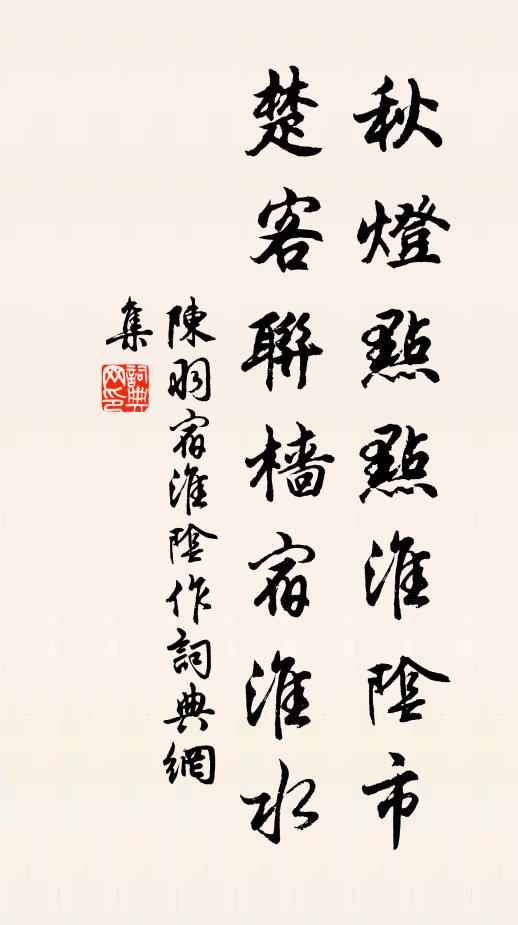 秋燈點點淮陰市
楚客聯檣宿淮水
陳羽宿淮陰作詞典網
集
詞典網印